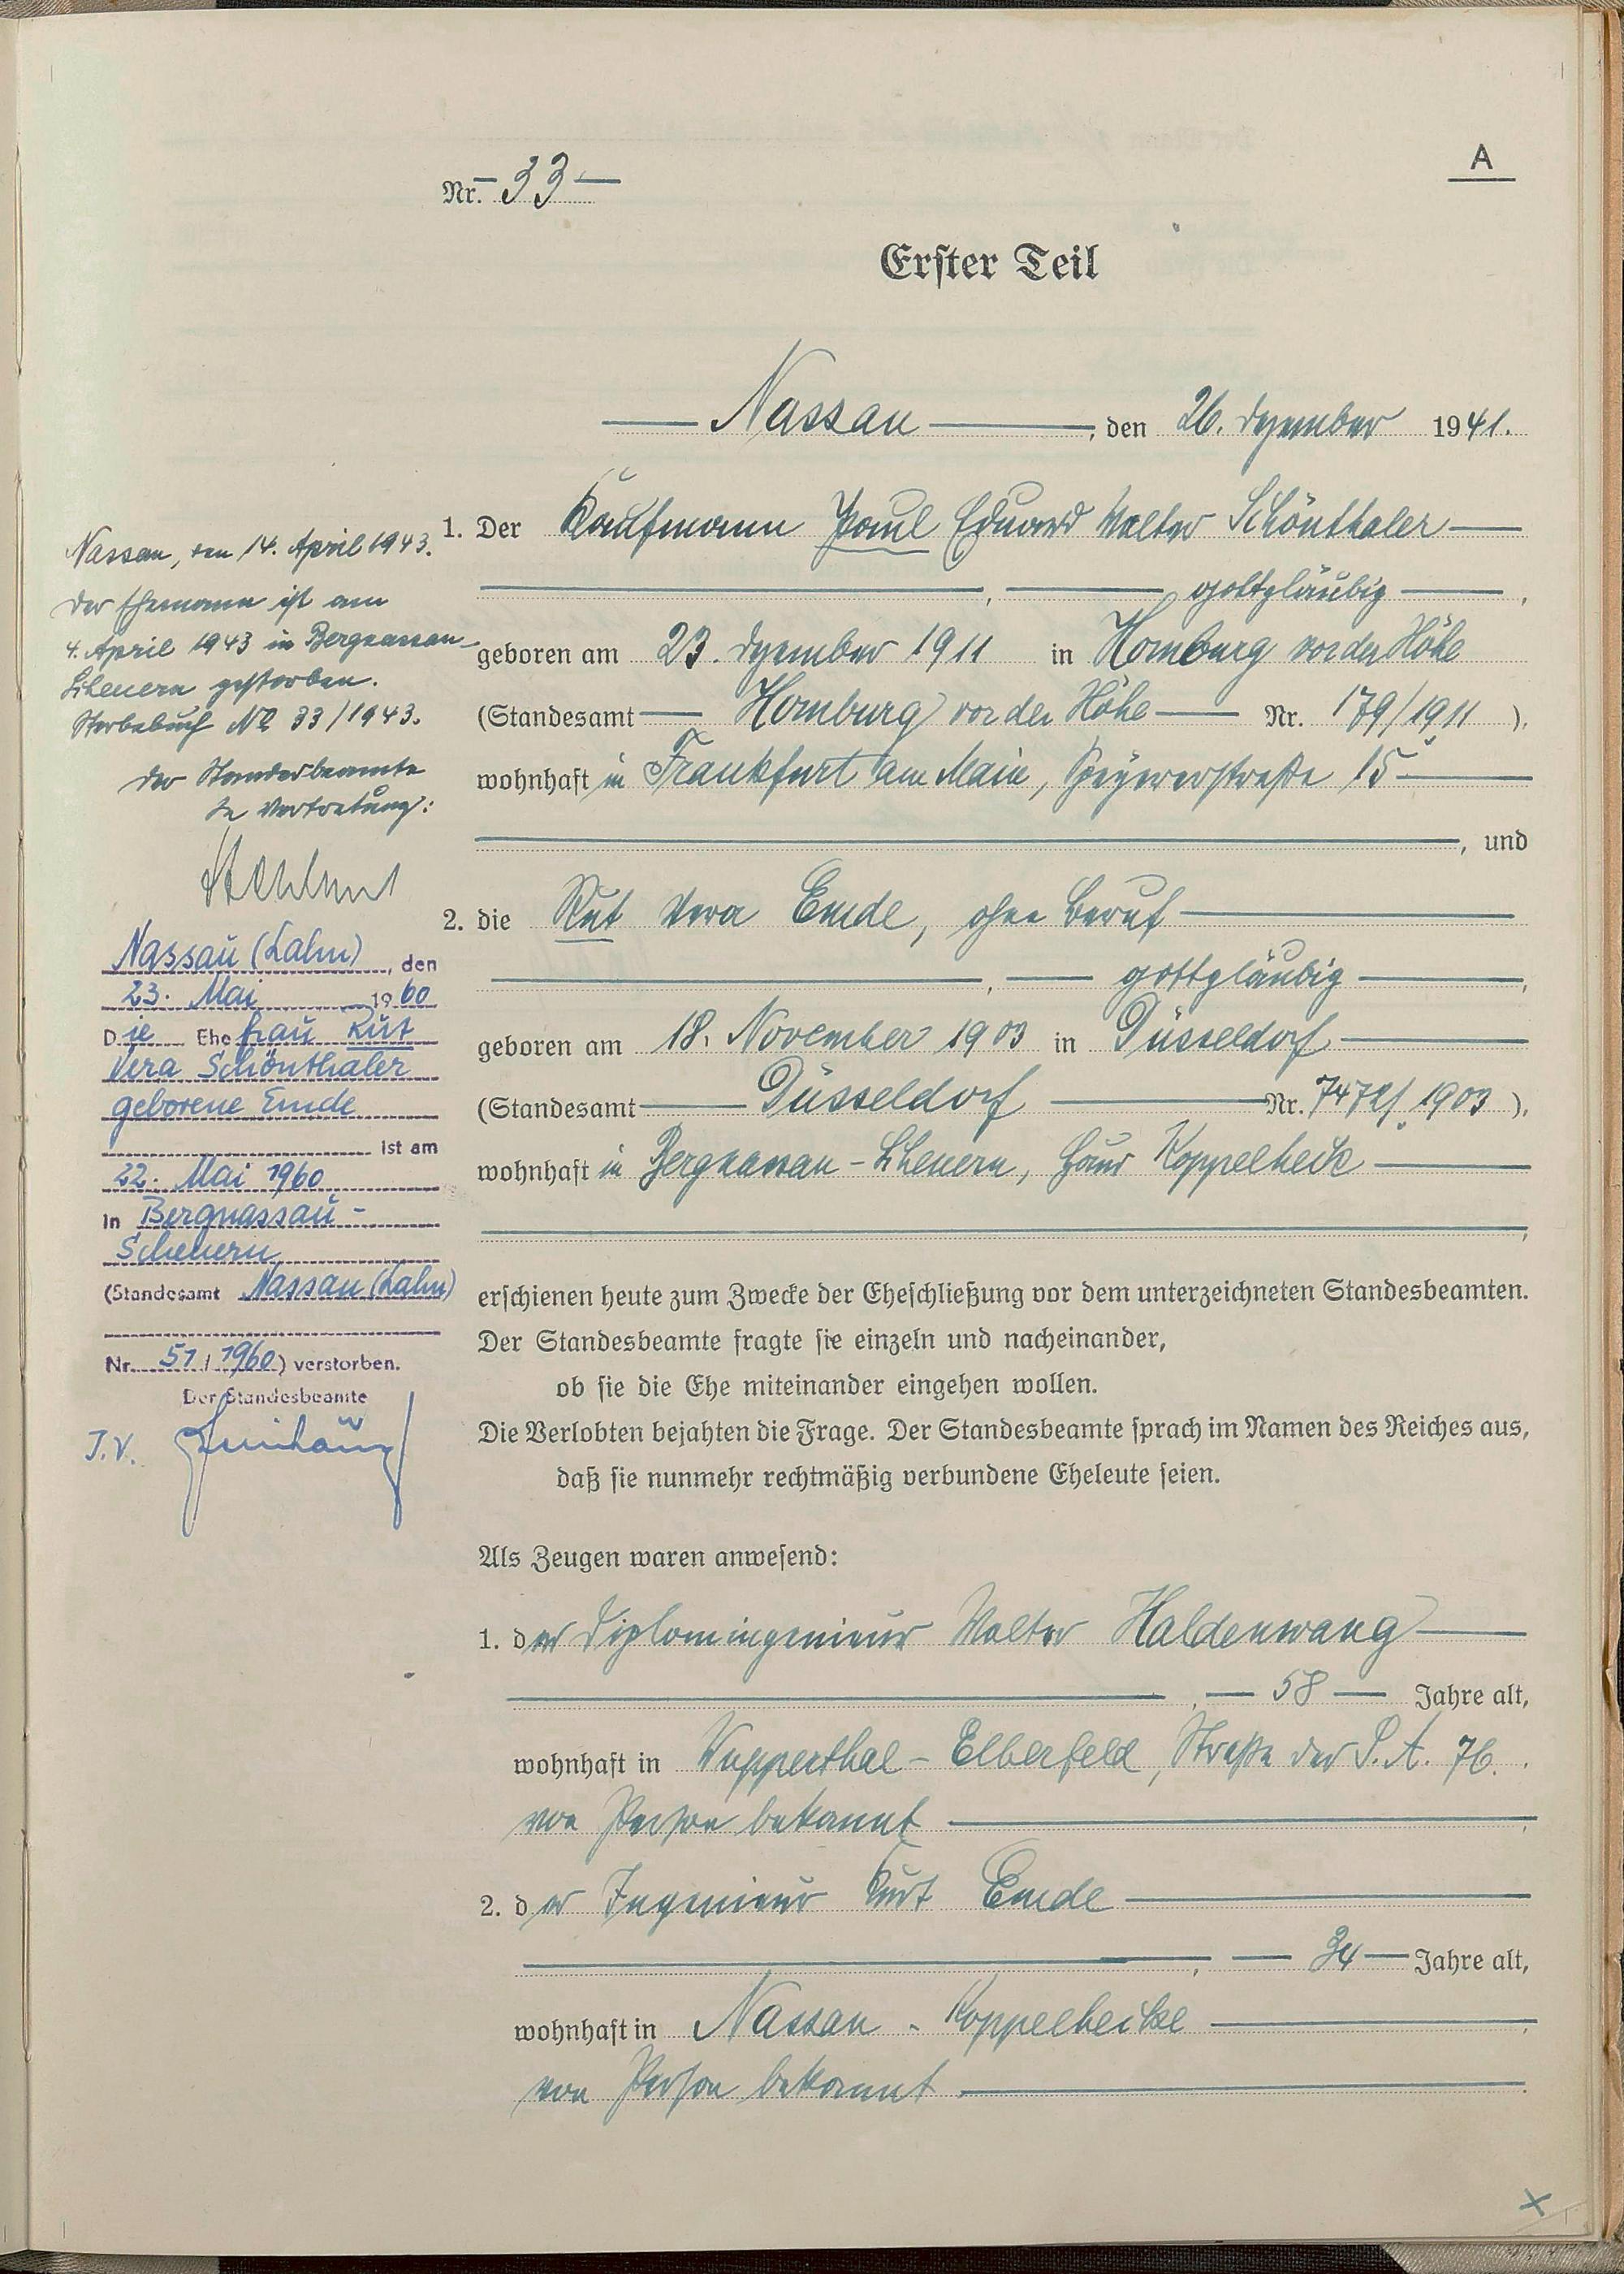 A
Nr. 33
Erster Teil
Nassau, den 26. Dezember 1941.
1. Der Kaufmann Paul Eduard Walter Schönthaler
, gottgläubig,
geboren am 23. Dezember 1911 in Homburg vor der Höhe
(Standesamt Homburg vor der Höhe Nr. 179/1911).
wohnhaft in Frankfurt am Main, Speyererstraße 15
, und
2. die Rut Vera Emde, ohne Beruf
, gottgläubig,
geboren am 18. November 1903 in Düsseldorf
(Standesamt Düsseldorf Nr. 7472/1903).
wohnhaft in Bergnassau-Scheuern, Haus Koppelheck
,
erschienen heute zum Zwecke der Eheschließung vor dem unterzeichneten Standesbeamten.
Der Standesbeamte fragte sie einzeln und nacheinander,
ob sie die Ehe miteinander eingehen wollen.
Die Verlobten bejahten die Frage. Der Standesbeamte sprach im Namen des Reiches aus,
daß sie nunmehr rechtmäßig verbundene Eheleute seien.
Als Zeugen waren anwesend:
1. der Diplomingenieur Walter Haldenwang
, 58 Jahre alt,
wohnhaft in Wupperthal-Elberfeld, Straße der S.A. 76.
von Person bekannt,
2. der Ingenieur Kurt Emde
, 34 Jahre alt,
wohnhaft in Nassau - Koppelheike,
von Person bekannt.
Nassau, den 14. April 1943.
Der Ehemann ist am
4. April 1943 in Bergnassau-
Scheuern gestorben.
Sterbebuch No 33/1943.
Der Standesbeamte
In Vertretung:
Nassau (Lahn), den
23. Mai 1960
Die Ehefrau Rut
Vera Schönthaler
geborene Emde
ist am
22. Mai 1960
in Bergnassau-
Scheuern
(Standesamt Nassau (Lahn)
Nr. 51/1960) verstorben.
Der Standesbeamte
I.V.